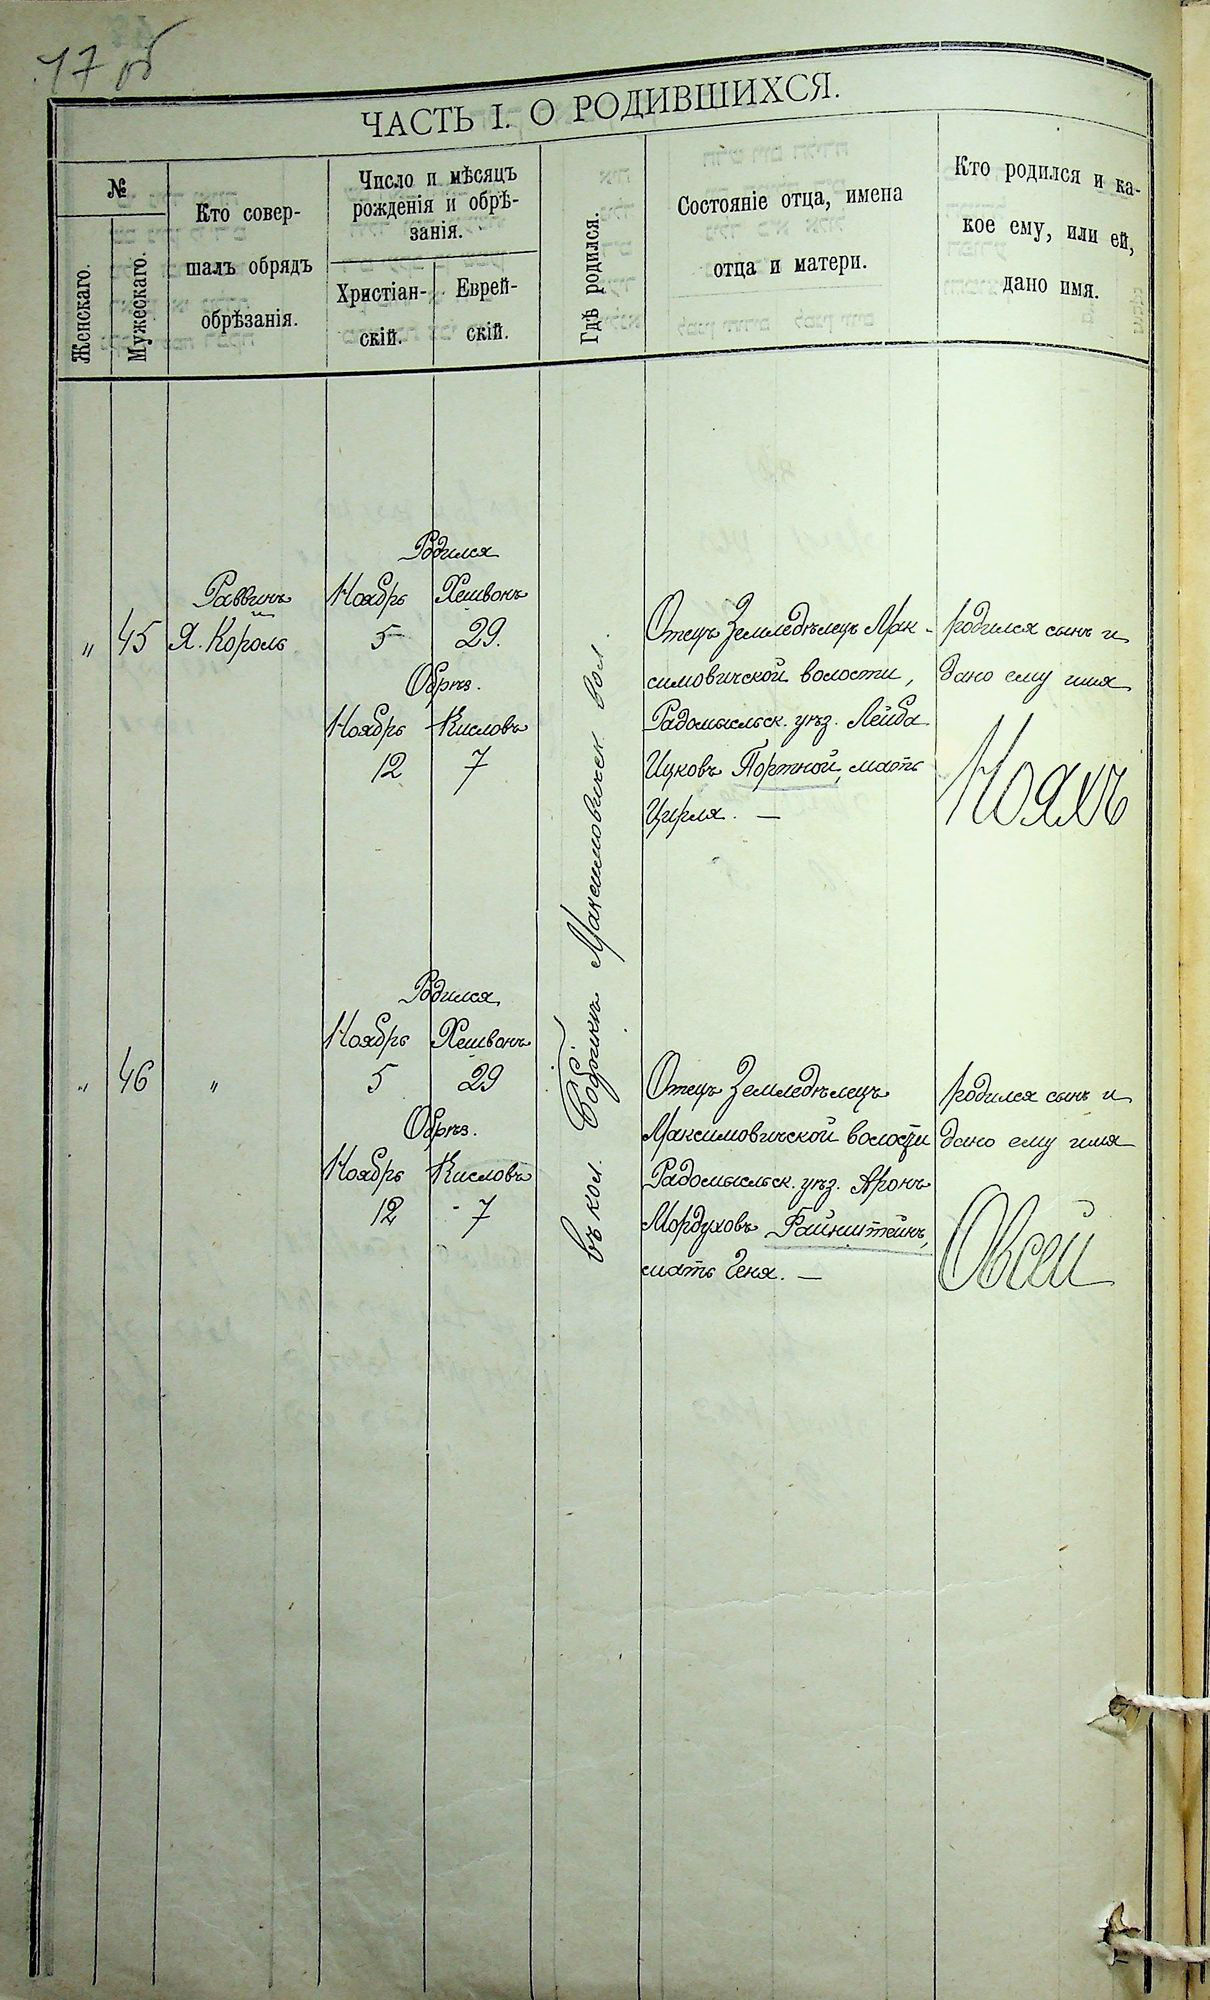 17 об
ЧАСТЬ I. О РОДИВШИХСЯ.
№
Женскаго.
Мужескаго.
Кто совер-
шалъ обрядъ
обрѣзанія.
Число и мѣсяцъ
рожденія и обрѣ-
занія.
Христіан-
скій.
Еврей-
скій.
Гдѣ родился.
Состояніе отца, имена
отца и матери.
Кто родился и ка-
кое ему, или ей,
дано имя.
„ 45
Раввинъ
Я. Король
Родился
Ноябрь Хешвонъ
5 29.
Обрѣз.
Ноябрь Кисловъ
12 7
въ кол. Максимовичск. вол.
Отецъ Земледѣлецъ Мак-
симовичской волости,
Радомысльск. уѣз. Лейба
Ицковъ Портной, мать
Цирля. —
родился сынъ и
дано ему имя
Нояхъ
„ 46 „
Родился
Ноябрь Хешвонъ
5 29
Обрѣз.
Ноябрь Кисловъ
12 7
Отецъ Земледѣлецъ
Максимовичской волости
Радомысльск. уѣз. Аронъ
Мордуховъ Файнштейнъ,
мать Геня. —
родился сынъ и
дано ему имя
Овсей